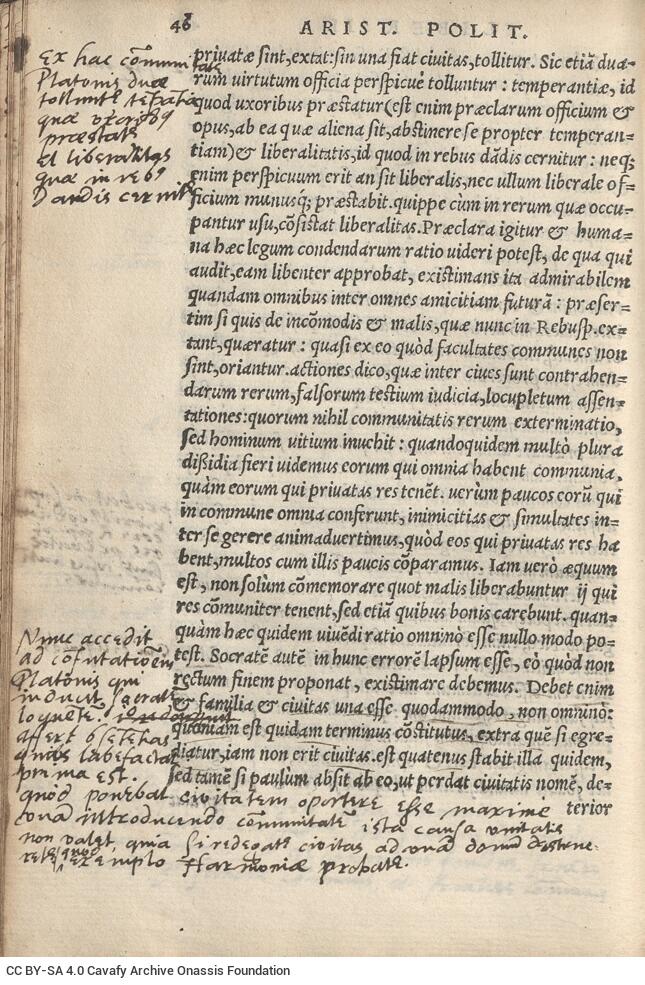 48
ARIST. POLIT.
Ex hac com̄unitate
Platonis duæ
tollunt
quæ uxoribꝰ
præstat
et liberalitas
quæ in rebꝰ
Dandis cernit
priuatæ sint, extat: sin una fiat ciuitas, tollitur. Sic etiã dua=
rum uirtutum officia perspicuè tolluntur : temperantiæ, id
quod uxoribus præstatur (est enim præclarum officium &
opus, ab ea quæ aliena sit, abstinere se propter temperan=
tiam) & liberalitatis, id quod in rebus dãdis cernitur : neq;
enim perspicuum erit an sit liberalis, nec ullum liberale of=
ficium munusq́; præstabit. quippe cum in rerum quæ occu=
pantur usu, cõsistat liberalitas. Præclara igitur & huma=
na hæc legum condendarum ratio uideri potest, de qua qui
audit, eam libenter approbat, existimans ita admirabilem
quandam omnibus inter omnes amicitiam futurã : præser=
tim si quis de incõmodis & malis, quæ nunc in Rebusp. ex=
tant, quæratur : quasi ex eo quòd facultates communes non
sint, oriantur. actiones dico, quæ inter ciues sunt contrahen=
darum rerum, falsorum testium iudicia, locupletum assen=
tationes: quorum nihil communitatis rerum exterminatio,
sed hominum uitium inuehit : quandoquidem multò plura
dißidia fieri uidemus eorum qui omnia habent communia,
quàm eorum qui priuatas res tenẽt. uerùm paucos corũ qui
in commune omnia conferunt, inimicitias & simultates in=
ter se gerere animaduertimus, quòd eos qui priuatas res ha
bent, multos cum illis paucis cõparamus. Iam uerò æquum
est, non solùm cõmemorare quot malis liberabuntur ij qui
res cõmuniter tenent, sed etiã quibus bonis carebunt. quan=
quàm hæc quidem uiuẽdi ratio omninò esse nullo modo po=
test. Socratẽ autẽ in hunc errorẽ lapsum esse, eò quòd non
rectum finem proponat, existimare debemus. Debet enim
& familia & ciuitas una esse quodammodo, non omninò:
quoniam est quidam terminus cõstitutus, extra quẽ si egre=
diatur, iam non erit ciuitas. est quatenus stabit illa quidem,
sed tamẽ si paulùm absit ab eo, ut perdat ciuitatis nomẽ, de=
terior
Nunc accedit
ad cõfutationem
Platonis qui
inducit
loquẽtẽ.
afert
quas labefactat
prima est.
quod ponebat civitatem oportere esse maxime
una introducendo cõmunitatẽ ista causa unitatis
non valet, quia si redegat civitas ad unã domũ
exemplo Harmoniæ probat.
CC BY-SA 4.0 Cavafy Archive Onassis Foundation